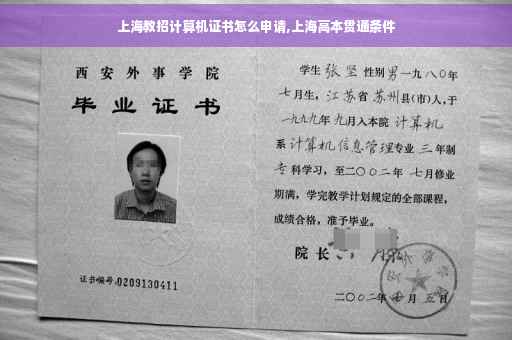 上海教招计算机证书怎么申请,上海高本贯通条件
西安外事学院
毕业证书
证书编号:0209130411
学生 张坚 性别 男 一九八〇年
七月生，江苏省 苏州县(市)人,于
一九九九年 九月入本院 计算机
系 计算机信息管理专业 三 年制
专科学习，至二〇〇二年 七月修业
期满，学完教学计划规定的全部课程，
成绩合格，准予毕业。
院 长
二〇〇二年 月 五日